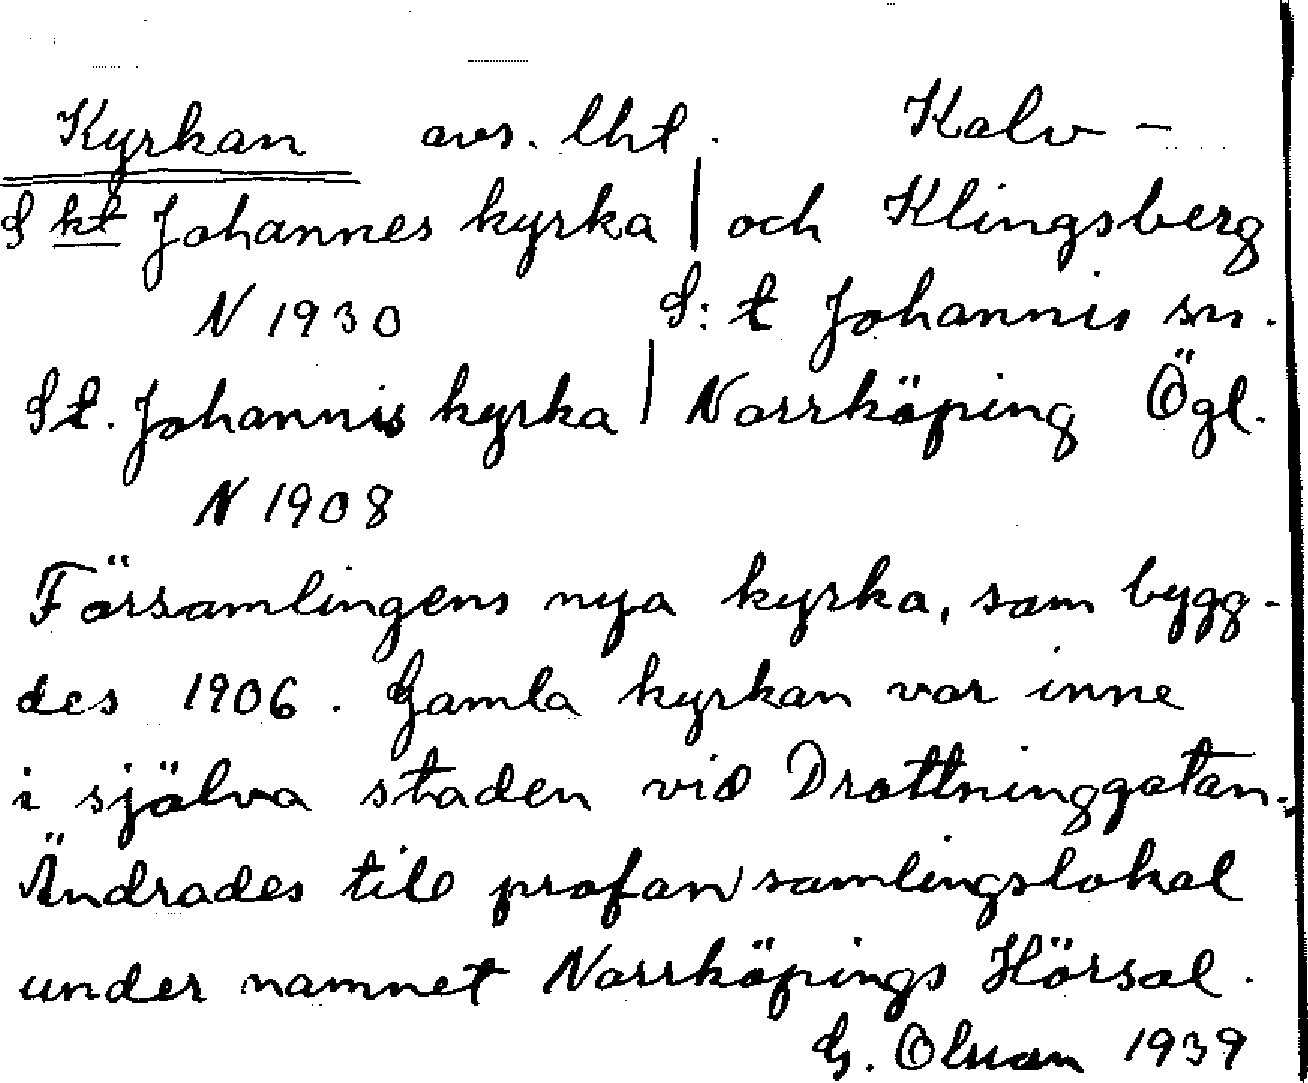 Kyrkan avs. lht. Kalv-
Skt Johannes kyrka | och Klingsberg
N 1930 S:t Johannis sn.
St. Johannis kyrka | Norrköping Ögl.
N 1908
Församlingens nya kyrka, som bygg-
des 1906. Gamla kyrkan var inne
i själva staden vid Drottninggatan.
Ändrades till profan samlingslokal
under namnet Norrköpings Hörsal.
G. Olsson 1939